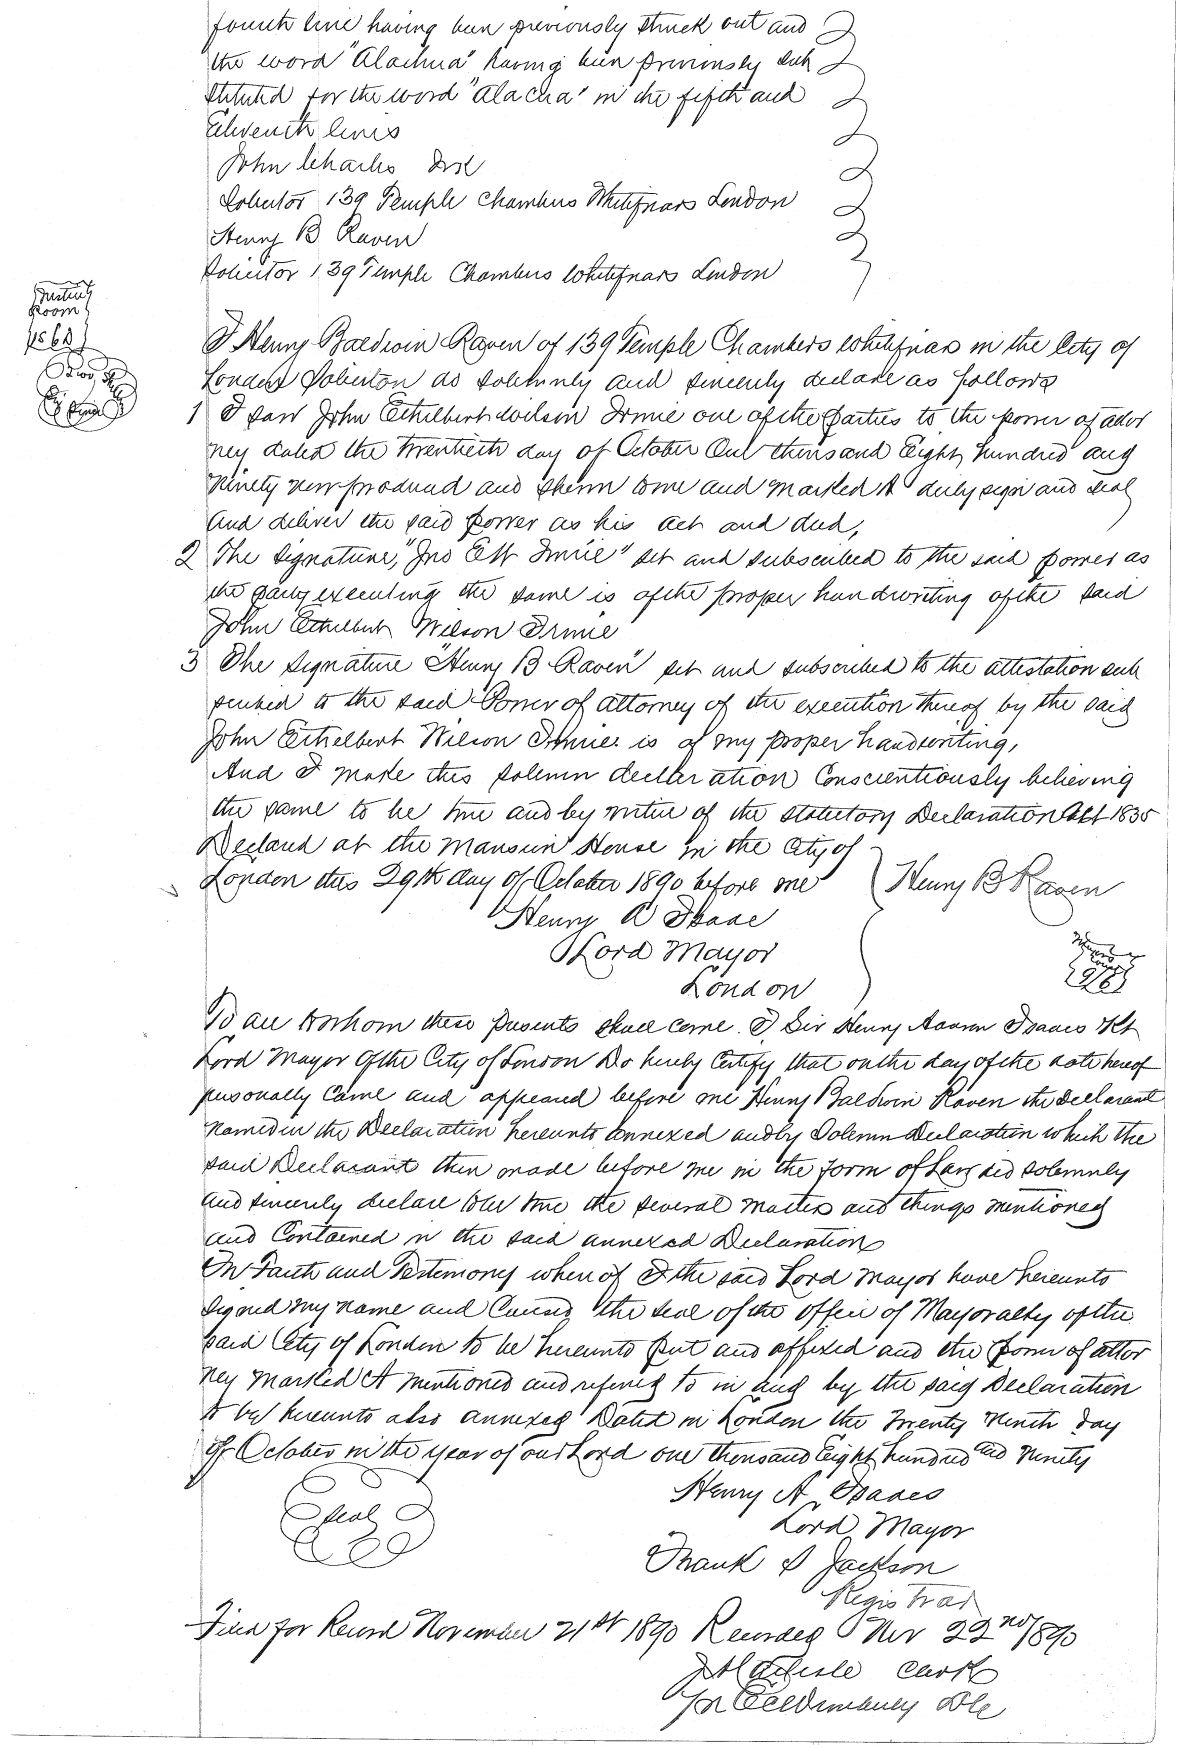 fourth line having been previously struck out and
the word "Alachua" having been previously sub
stituted for the word "alacha" in the fifth and
Eleventh lines
John Charles
Solicitor 139 Temple Chambers Whitefriars London
Henry B Raven
Solicitor 139 Temple Chambers Whitefriars London
Justice
Room
I Henry Baldwin Raven of 139 Temple Chambers Whitefriars in the City of
London Solicitor do solemnly and sincerely declare as follows
1 I saw John Ethelbert Wilson Irmie one of the parties to the power of attor
ney dated the twentieth day of October One thousand Eight hundred and
Ninety now produced and shewn to me and marked A duly sign and seal
and deliver the said power as his act and deed,
2 The signature, "Jno E W Irmie" set and subscribed to the said power as
the party executing the same is of the proper handwriting of the said
John Ethelbert Wilson Irmie
3 The signature "Henry B Raven" set and subscribed to the attestation sub
scribed to the said Power of attorney of the execution thereof by the said
John Ethelbert Wilson Irmie is of my proper handwriting,
And I make this solemn declaration Conscientiously believing
the same to be true and by virtue of the statutory Declaration Act 1835
Declared at the Mansion House in the City of
London this 29th day of October 1890 before me Henry B Raven
Henry A Isaac
Lord Mayor
London
To all to whom these presents shall come I Sir Henry Aaron Isaacs Kt
Lord Mayor of the City of London Do hereby Certify that on the day of the date hereof
personally came and appeared before me Henry Baldwin Raven the declarant
named in the Declaration hereunto annexed and by Solemn Declaration which the
said Declarant then made before me in the form of Law did solemnly
and sincerely declare to be true the several matters and things mentioned
and Contained in the said annexed Declaration
In Faith and Testimony whereof I the said Lord Mayor have hereunto
signed my name and Caused the seal of the office of Mayoralty of the
said City of London to be hereunto put and affixed and the power of attor
ney marked A mentioned and referred to in and by the said Declaration
to be hereunto also annexed Dated in London the Twenty Ninth day
of October in the year of our Lord one thousand Eight hundred and Ninety
Henry A. Isaacs
Seal
Lord Mayor
Frank S Jackson
Registrar
Filed for Record November 21st 1890 Recorded Nov 22nd 1890
J A Carlisle Clerk